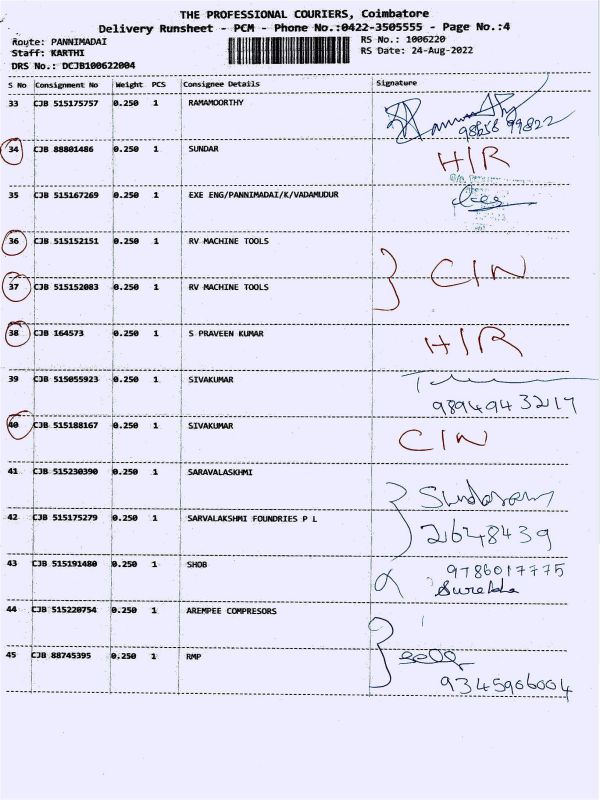 THE PROFESSIONAL COURIERS, Coimbatore
Delivery Runsheet - PCM - Phone No.:0422-3505555 - Page No.:4
Route: PANNIMADAI
RS No.: 1006220
Staff: KARTHI
RS Date: 24-Aug-2022
DRS No.: DCJB100622004
S No Consignment No Weight PCS Consignee Details Signature
33 CJB 515175757 0.250 1 RAMAMOORTHY
98658 99822
34 CJB 88801486 0.250 1 SUNDAR H/R
35 CJB 515167269 0.250 1 EXE ENG/PANNIMADAI/K/VADAMUDUR
36 CJB 515152151 0.250 1 RV MACHINE TOOLS
C/N
37 CJB 515152083 0.250 1 RV MACHINE TOOLS
38 CJB 164573 0.250 1 S PRAVEEN KUMAR H/R
39 CJB 515055923 0.250 1 SIVAKUMAR
9894943217
40 CJB 515188167 0.250 1 SIVAKUMAR C/N
41 CJB 515230390 0.250 1 SARAVALASKHMI
42 CJB 515175279 0.250 1 SARVALAKSHMI FOUNDRIES P L
2648439
43 CJB 515191480 0.250 1 SHOB
9786017775
Surekha
44 CJB 515220754 0.250 1 AREMPEE COMPRESORS
45 CJB 88745395 0.250 1 RMP
9345906004